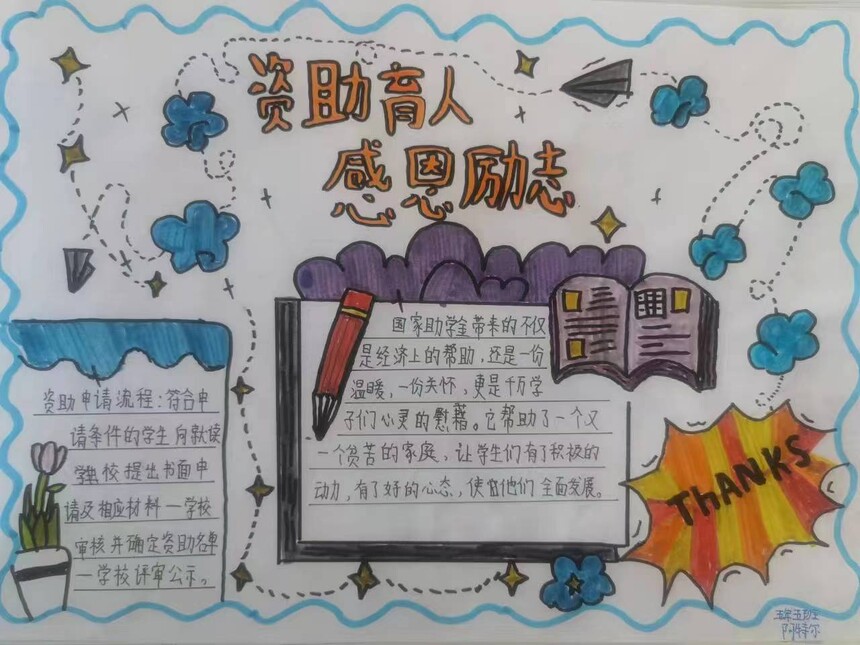 资助育人
感恩励志
国家助学金带来的不仅
是经济上的帮助,还是一份
温暖,一份关怀,更是千万学
子们心灵的慰藉。它帮助了一个又
一个贫苦的家庭,让学生们有了积极的
动力,有了好的心态,使他们全面发展。
资助申请流程:符合申
请条件的学生向就读
学校提出书面申
请及相应材料—学校
审核并确定资助名单
—学校评审公示。
THANKS
五年五班
阿特尔